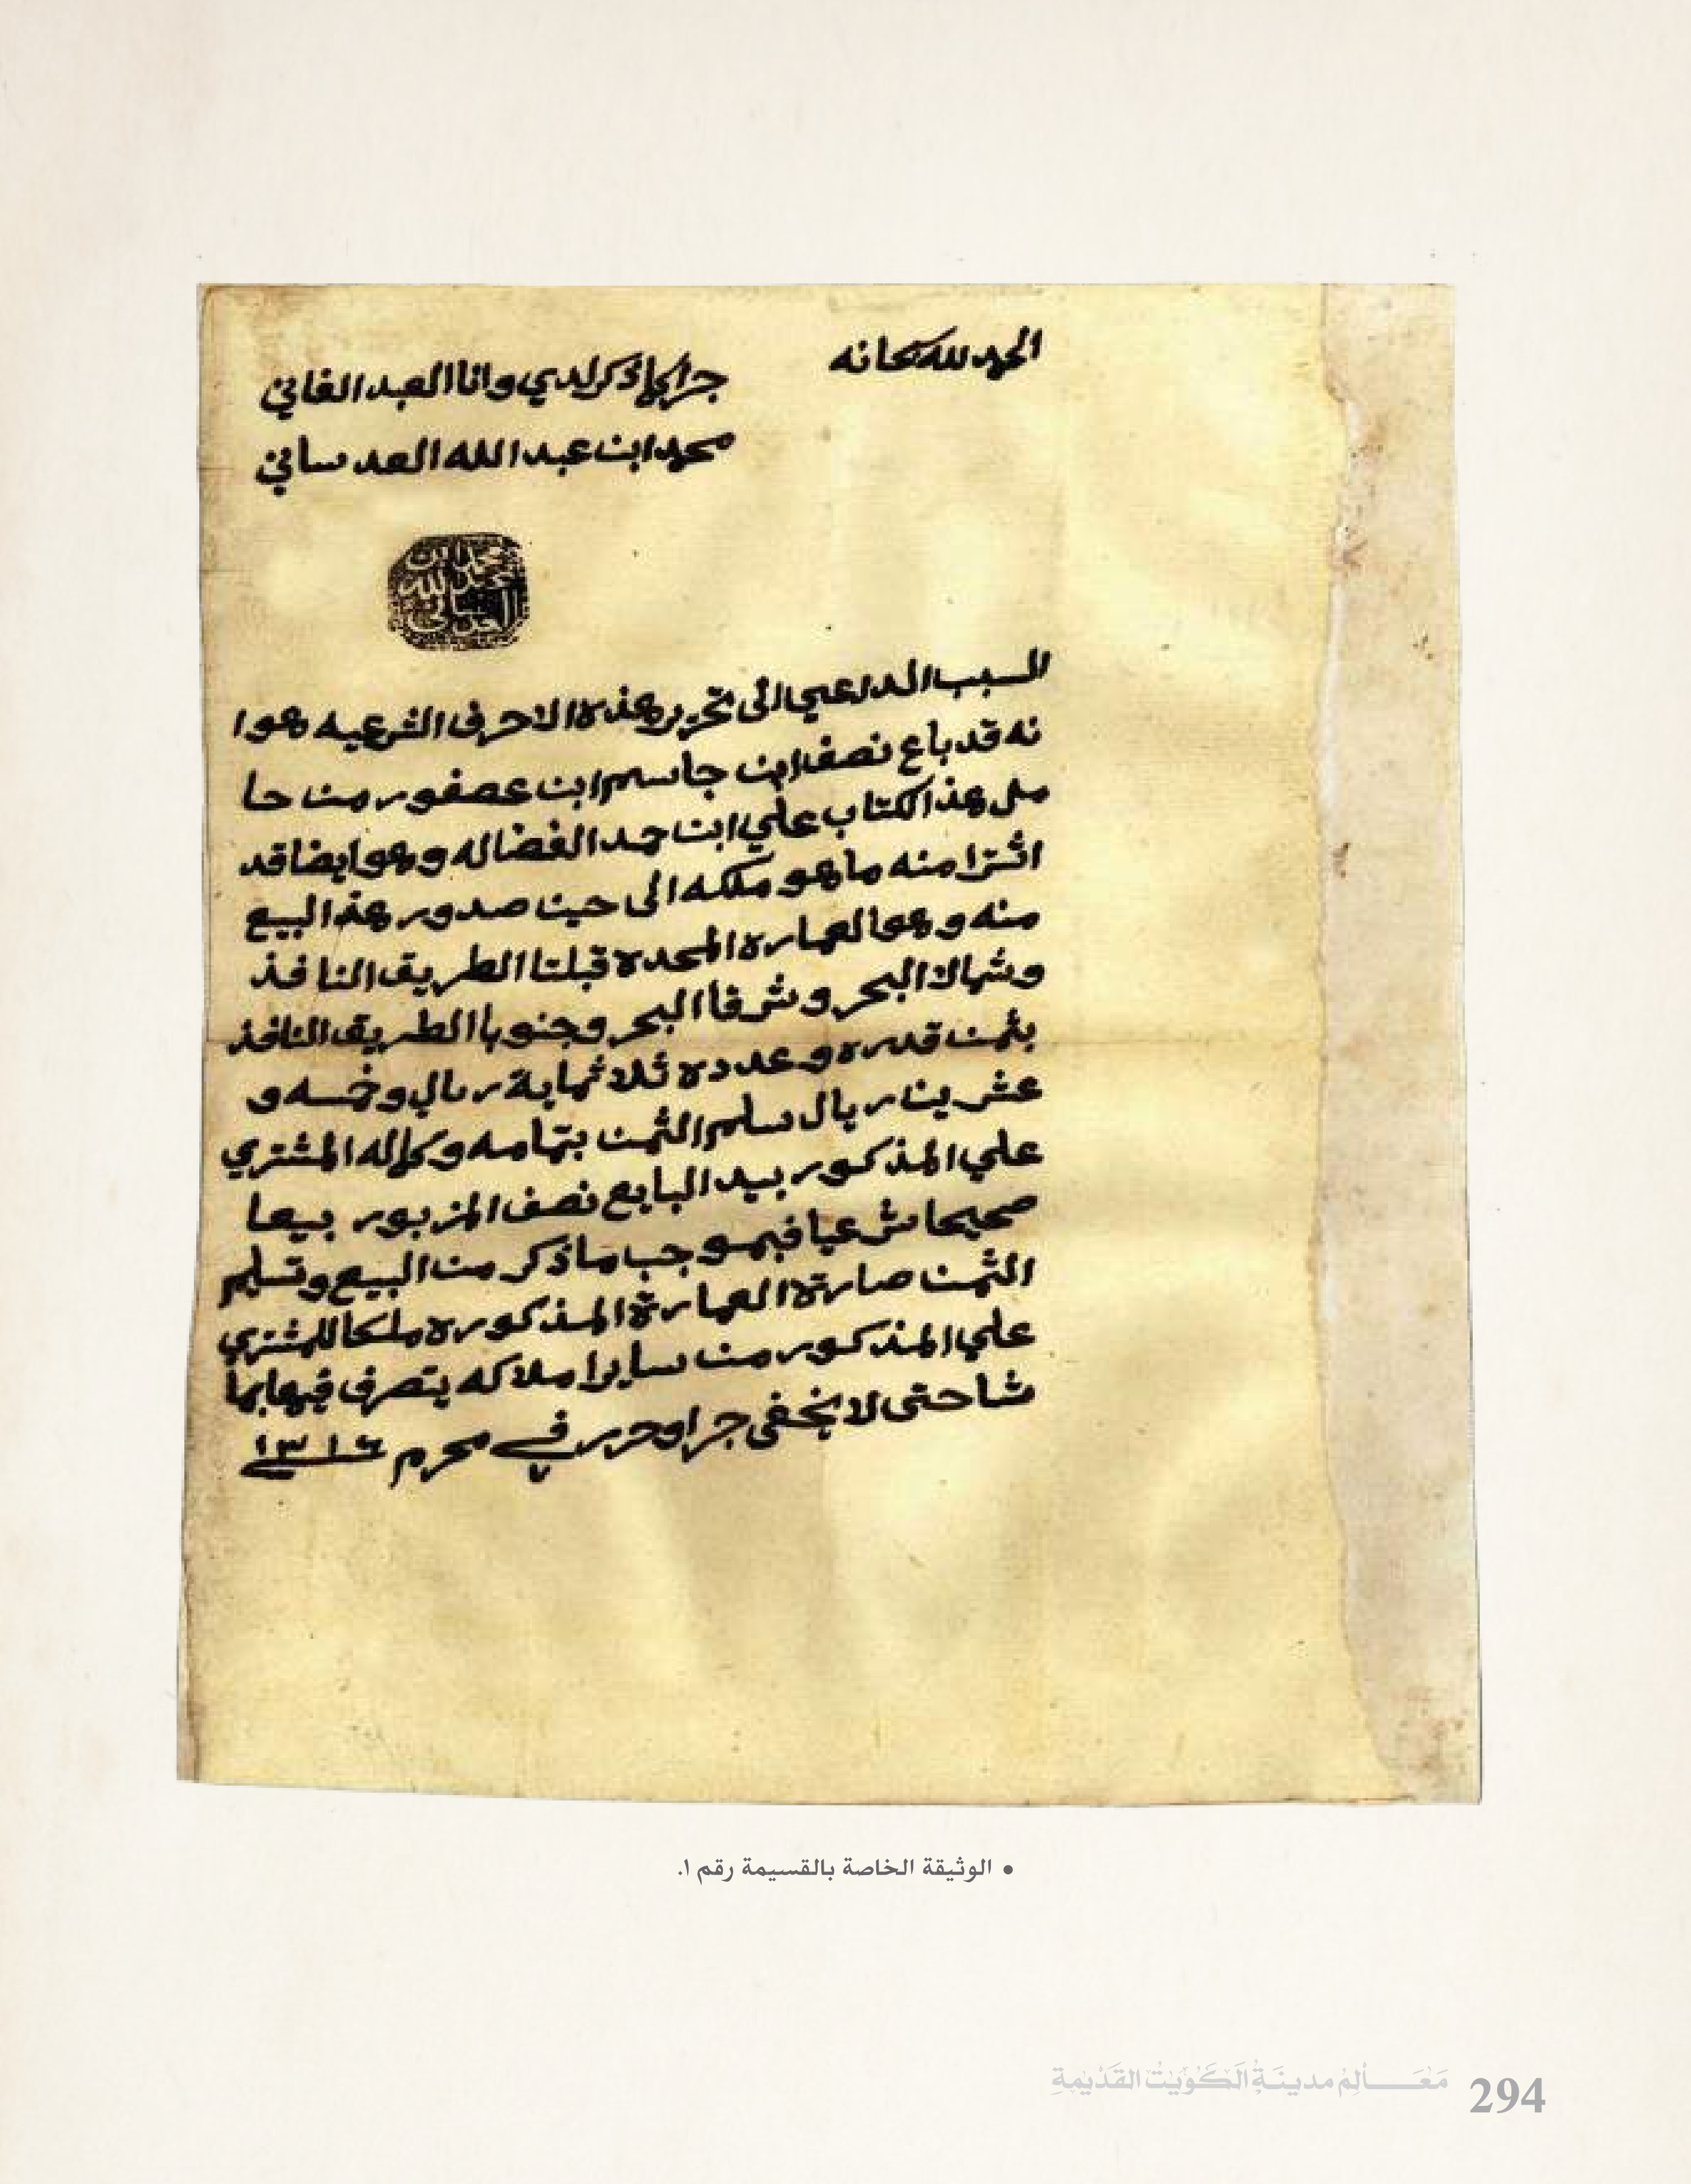 الحمد لله سبحانه
جرا كما ذكر لدي وانا العبد الفاني
محمد ابن عبدالله العدساني
محمد ابن عبدالله العدساني
السبب الداعي الى تحرير هذه الاحرف الشرعيه هوا
نه قد باع نصف ابن جاسم ابن عصفور من حا
مل هذا الكتاب علي ابن حمد الفضاله وهوا يضا قد
اشترا منه ما هو ملكه الى حين صدور هذ البيع
منه وهوا لعماره المحدده قبلتا الطريق النافذ
وشمالا البحر وشرقا البحر وجنوبا الطريق النافذ
بثمن قدره وعدده ثلاثماية ريال وخمسه و
عشرين ريال سلم الثمن بتمامه وكماله المشتري
علي المذكور بيد البايع نصف المزبور بيعا
صحيحا شرعيا فبموجب ما ذكر من البيع وتسليم
الثمن صارة العمارة المذكوره ملكا للمشتري
علي المذكور من ساير املاكه يتصرف فيها بما
شا حتى لا يخفى جرا وحرر في محرم ١٣١٦
• الوثيقة الخاصة بالقسيمة رقم ١.
مَعَالِمُ مدينَةِ الكُوَيْتِ القَدْيمَةِ 294